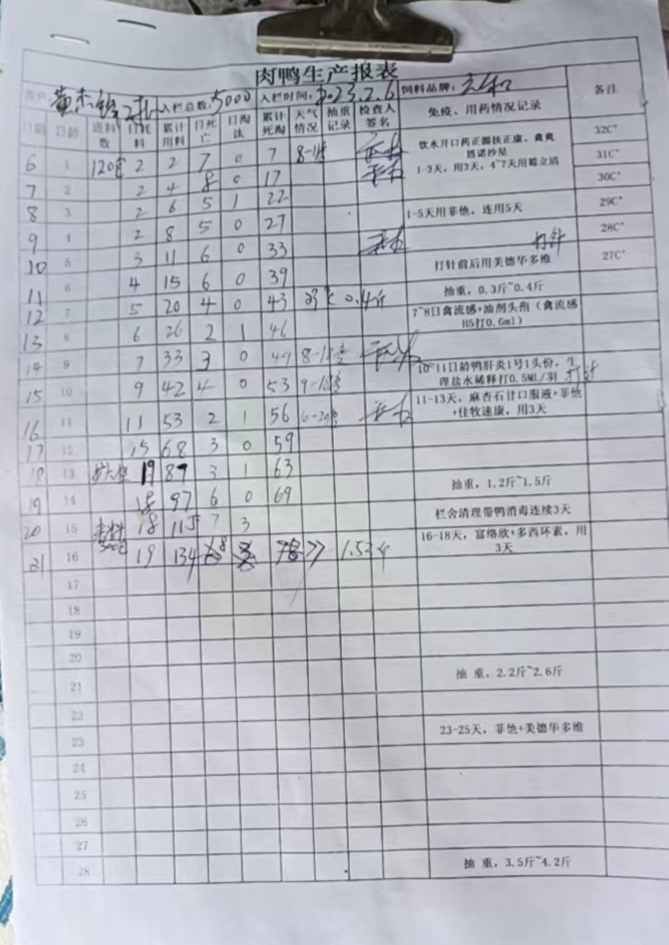 肉鸭生产报表
入栏总数: 5000 入栏时间: 2023.2.6 饲料品牌:
日期 日龄 进料数 日耗料 累计用料 日死亡 日淘汰 累计死淘 天气情况 抽重记录 检查人签名 免疫、用药情况记录 备注
6 1 120包 2 2 7 0 7 饮水开口药正源扶正康、禽爽 32C°
恩诺沙星 31C°
7 2 2 4 8 0 17 1-3天,用3天,4~7天用霉立清 30C°
8 3 2 6 5 1 22 1-5天用菲他,连用5天 29C°
9 4 2 8 5 0 27 打针 28C°
10 5 3 11 6 0 33 打针前后用美德华多维 27C°
11 6 4 15 6 0 39 抽重,0.3斤~0.4斤
12 7 5 20 4 0 43 0.4斤 7~8日禽流感+油剂头孢(禽流感
H5打0.6ml)
13 8 6 26 2 1 46
14 9 7 33 3 0 49 10~11日龄鸭肝炎1号1头份,生
理盐水稀释打0.5ML/羽 打针
15 10 9 42 4 0 53 11-13天,麻杏石甘口服液+菲他
+佳牧速康,用3天
16 11 11 53 2 1 56
17 12 15 68 3 0 59
18 13 19 87 3 1 63 抽重,1.2斤~1.5斤
19 14 18 97 6 0 69
20 15 18 115 7 3 栏舍清理带鸭消毒连续3天
21 16 19 134 8 77 16-18天,富络欣+多西环素,用
3天
17
18
19
20
21 抽 重,2.2斤~2.6斤
22
23 23-25天,菲他+美德华多维
24
25
26
27
28 抽 重,3.5斤~4.2斤